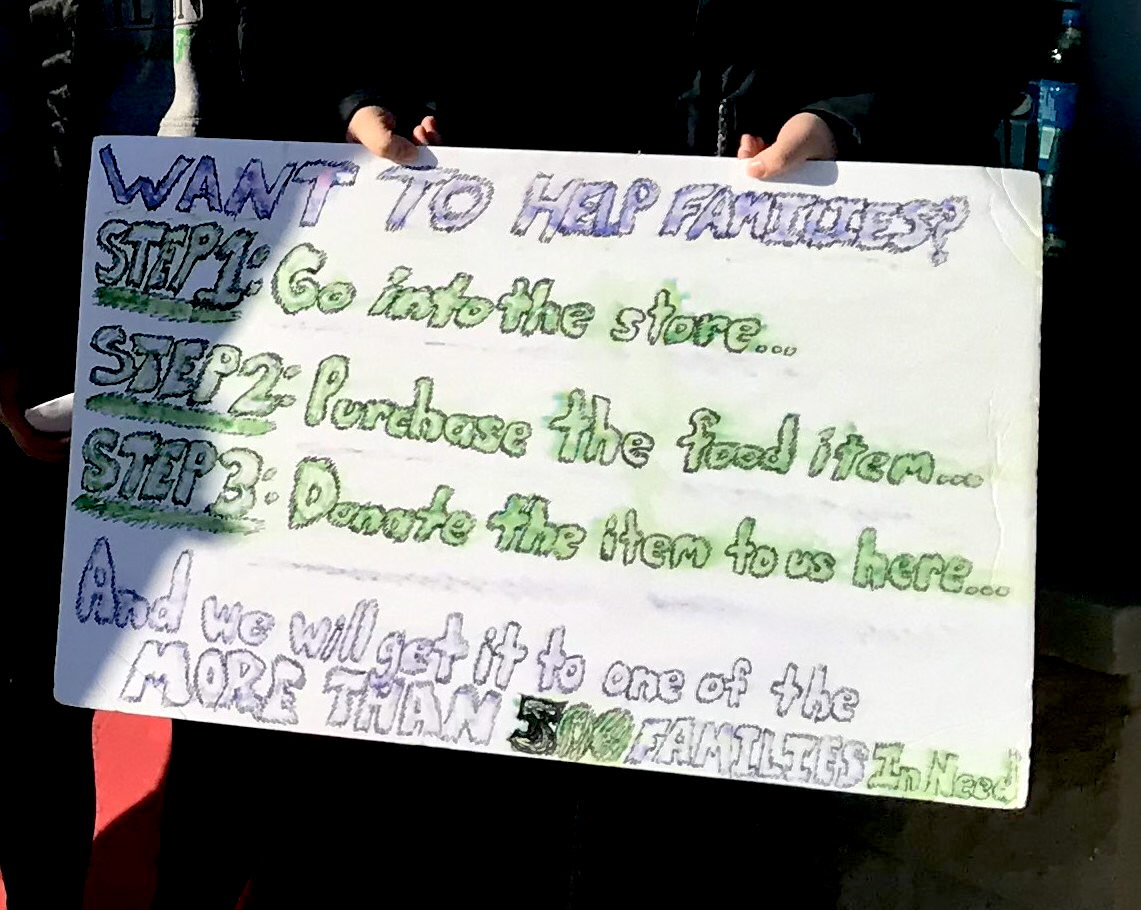 WANT TO HELP FAMILIES?
STEP 1: Go into the store...
STEP 2: Purchase the food item...
STEP 3: Donate the item to us here...
And we will get it to one of the
MORE THAN 300 FAMILIES In Need